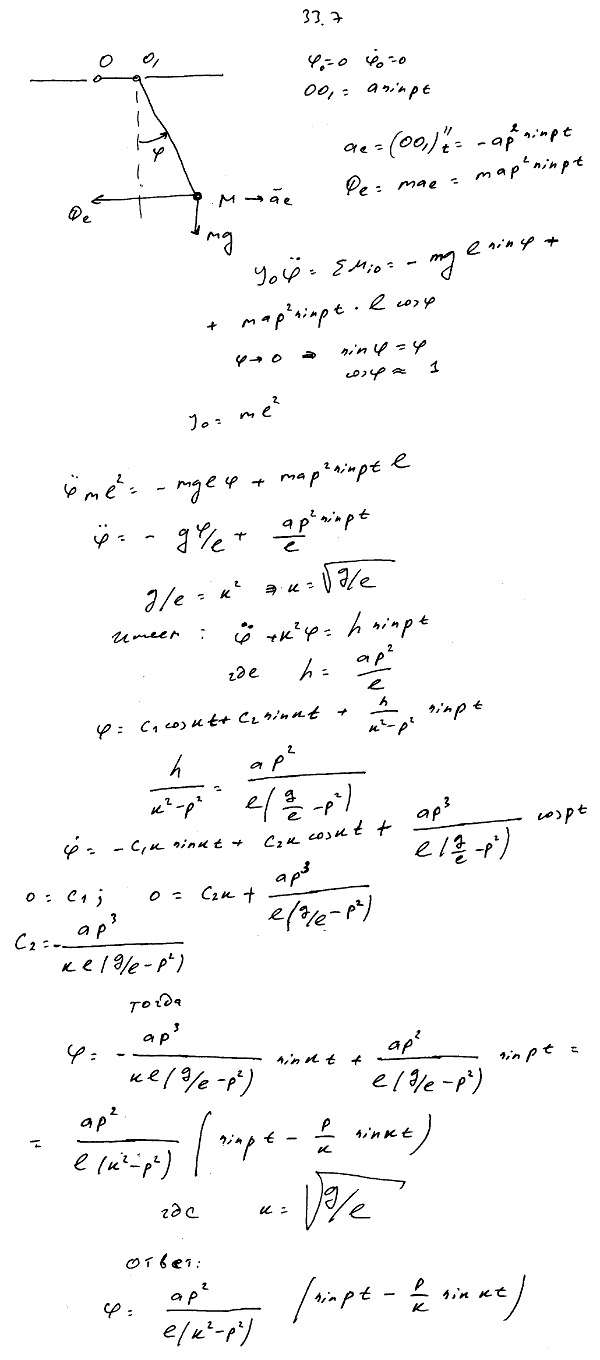 33.7
O O₁
φ₀=0 φ̇₀=0
OO₁ = a sin pt
φ
aₑ = (OO₁)ₜ'' = -ap² sin pt
Φₑ = maₑ = map² sin pt
Φₑ M → āₑ
mg
J₀φ̈ = ΣM_{i0} = - mg l sin φ +
+ map² sin pt · l cos φ
φ→0 ⇒ sin φ = φ
cos φ ≈ 1
J₀ = ml²
φ̈ ml² = - mglφ + map² sin pt l
φ̈ = - gφ/l + ap² sin pt / l
g/l = k² ⇒ k = √(g/l)
имеем : φ̈ + k²φ = h sin pt
где h = ap²/l
φ = C₁ cos kt + C₂ sin kt + h/(k²-p²) sin pt
h/(k²-p²) = ap²/(l(g/l - p²))
φ̇ = -C₁k sin kt + C₂k cos kt + ap³/(l(g/l - p²)) cos pt
0 = C₁ ; 0 = C₂k + ap³/(l(g/l - p²))
C₂ = - ap³/(kl(g/l - p²))
тогда
φ = - ap³/(kl(g/l - p²)) sin kt + ap²/(l(g/l - p²)) sin pt =
= ap²/(l(k²-p²)) (sin pt - p/k sin kt)
где k = √(g/l)
ответ:
φ = ap²/(l(k²-p²)) (sin pt - p/k sin kt)